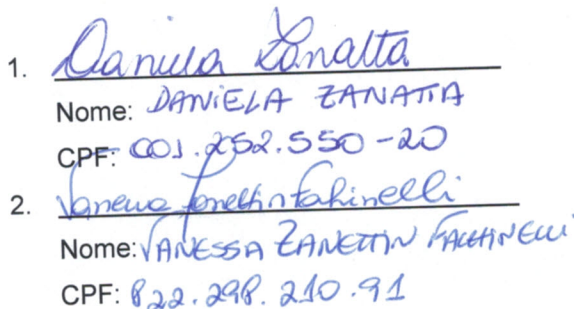 1. Daniela Zanatta
Nome: DANIELA ZANATTA
CPF: 001.252.550-20
2. Vanessa Zanettin Fachinelli
Nome: VANESSA ZANETTIN FACHINELLI
CPF: 822.298.210.91